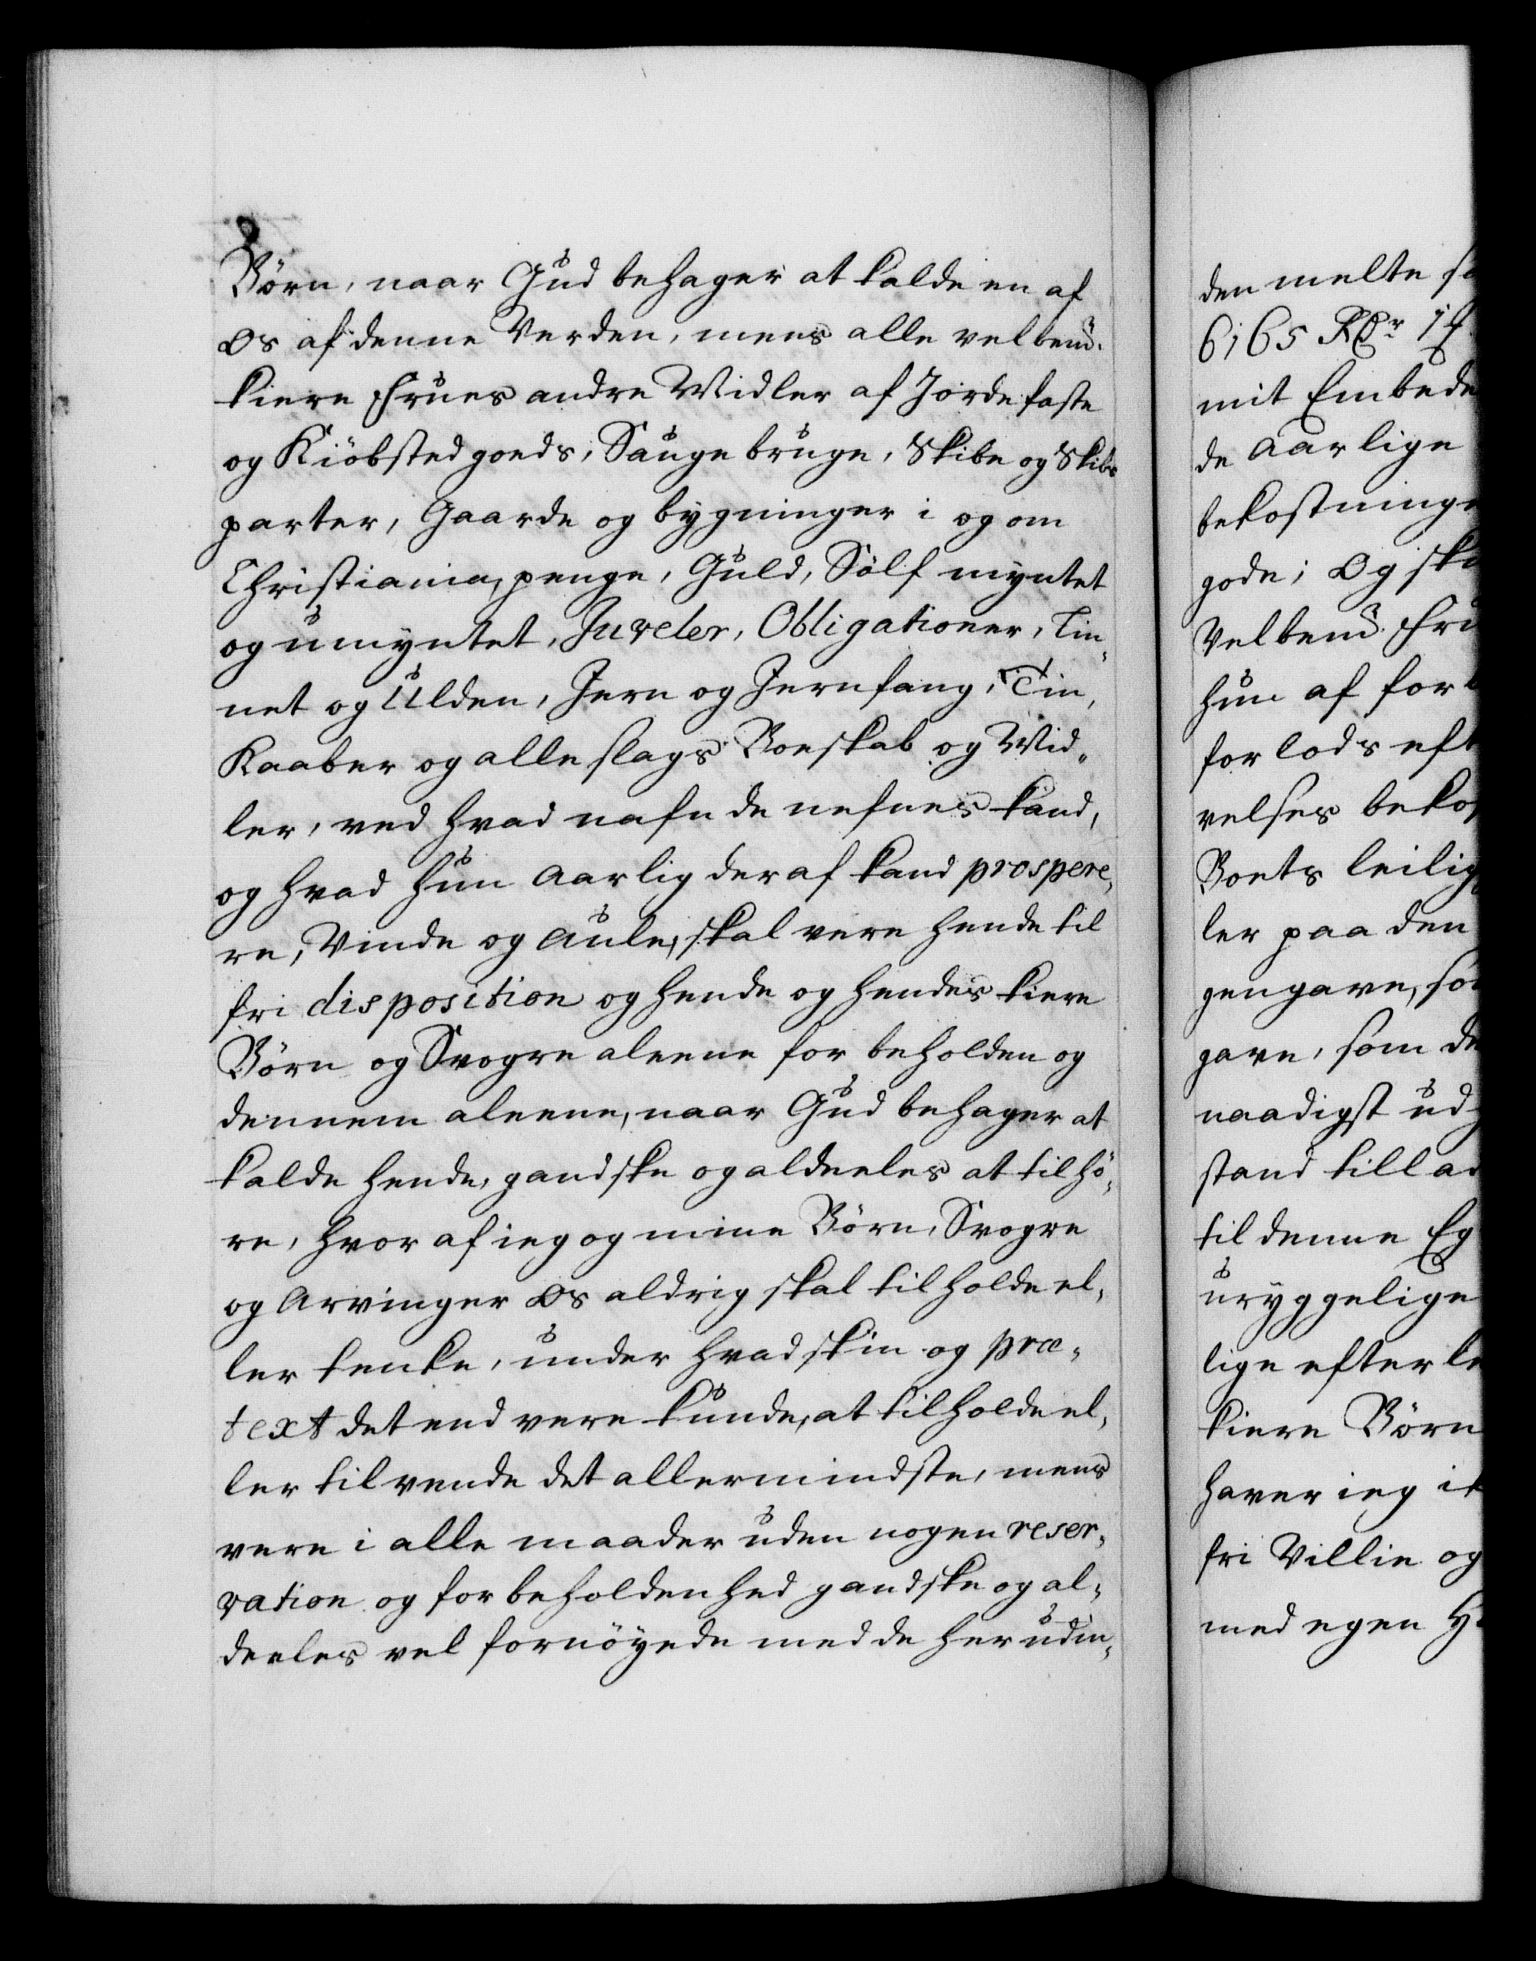 Börn, naar Gud behager at kalde en af
os af denne Verden, mens alle velbem:
kiere Frues andre Midler af Jordefaste
og Kiöbstedgoeds, Saugebruge, Skibe og Skibs
parter, Gaarde og bygninger i og om
Christiania, penge, Guld, Sölf myntet
og umyntet, Juveler, Obligationer, Lin,
net og Ulden, Jern og Jernfang, Tin,
Kaaber og alle slags Boeskab og Mid,,
ler, ved hvad nafn de nefnes kand,
og hvad hun Aarlig deraf kand prospere,
re, Vinde og aule, skal vere hende til
fri disposition og hende og hendes kiere
Börn og Svogre aleene forbeholden og
dennem aleene, naar Gud behager at
kalde hende, gandske og aldeeles at tilhö,
re, hvor af ieg og mine Börn, Svogre
og Arvinger os aldrig skal tilholde el,
ler tenke, under hvad skin og præ,
text det end vere kunde, at tilholde el,
ler tilvende det allermindste, mens
vere i alle maader uden nogen reser,
vation og forbeholdenhed gandske og al,
deeles vel fornöyede med de herudin,
den melte
6165 Rdr 1
mit Embede
de Aarlige
bekostninge
gode; Og
Velbem: Fru
hun af
forlods eft
velses beko
Boets leilig
ler paa den
gengave,
gave, som de
naadigst ud
stand tillad
til denne Eg
uryggelige
lige efterle
kiere Börn
haver ieg
fri Villie og
med egen